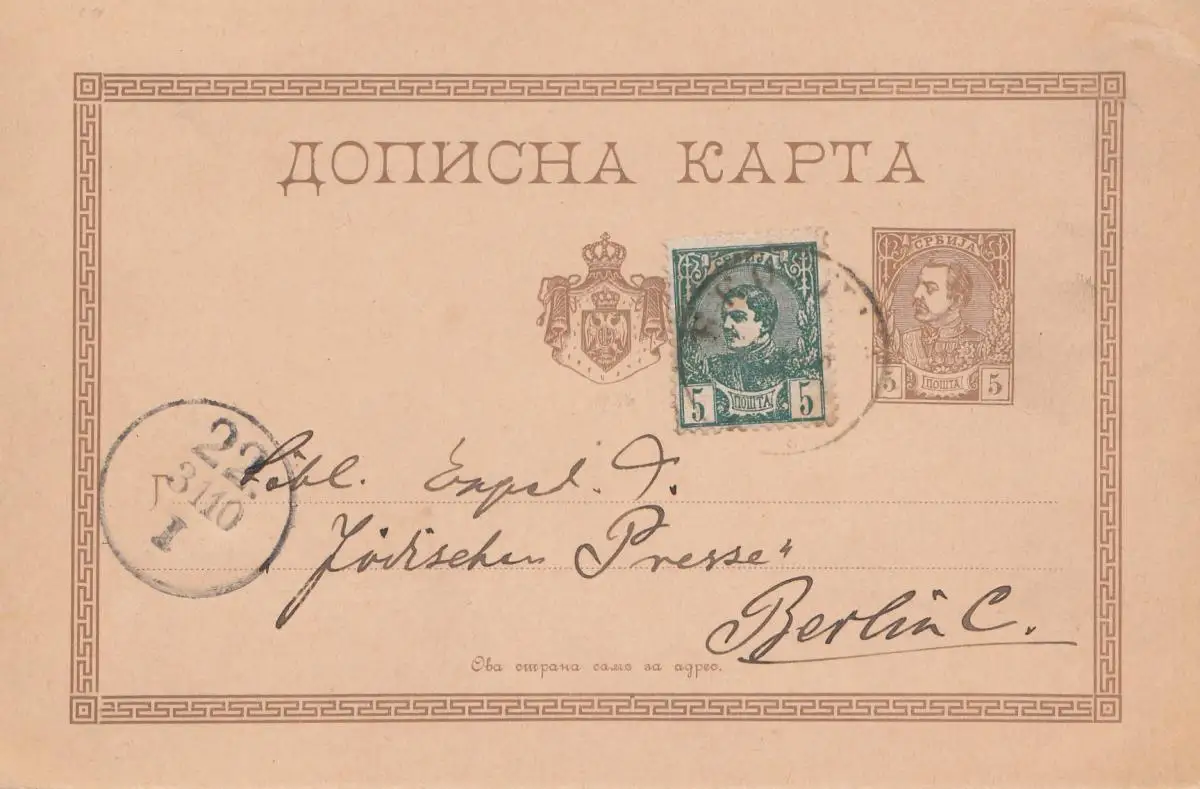 ДОПИСНА КАРТА
СРБИЈА
5 ПОШТА 5
СРБИЈА
5 ПОШТА 5
22.
31 10
I
Löbl. Exped. d.
Jüdischen Presse“
Berlin C.
Ова страна само за адрес.